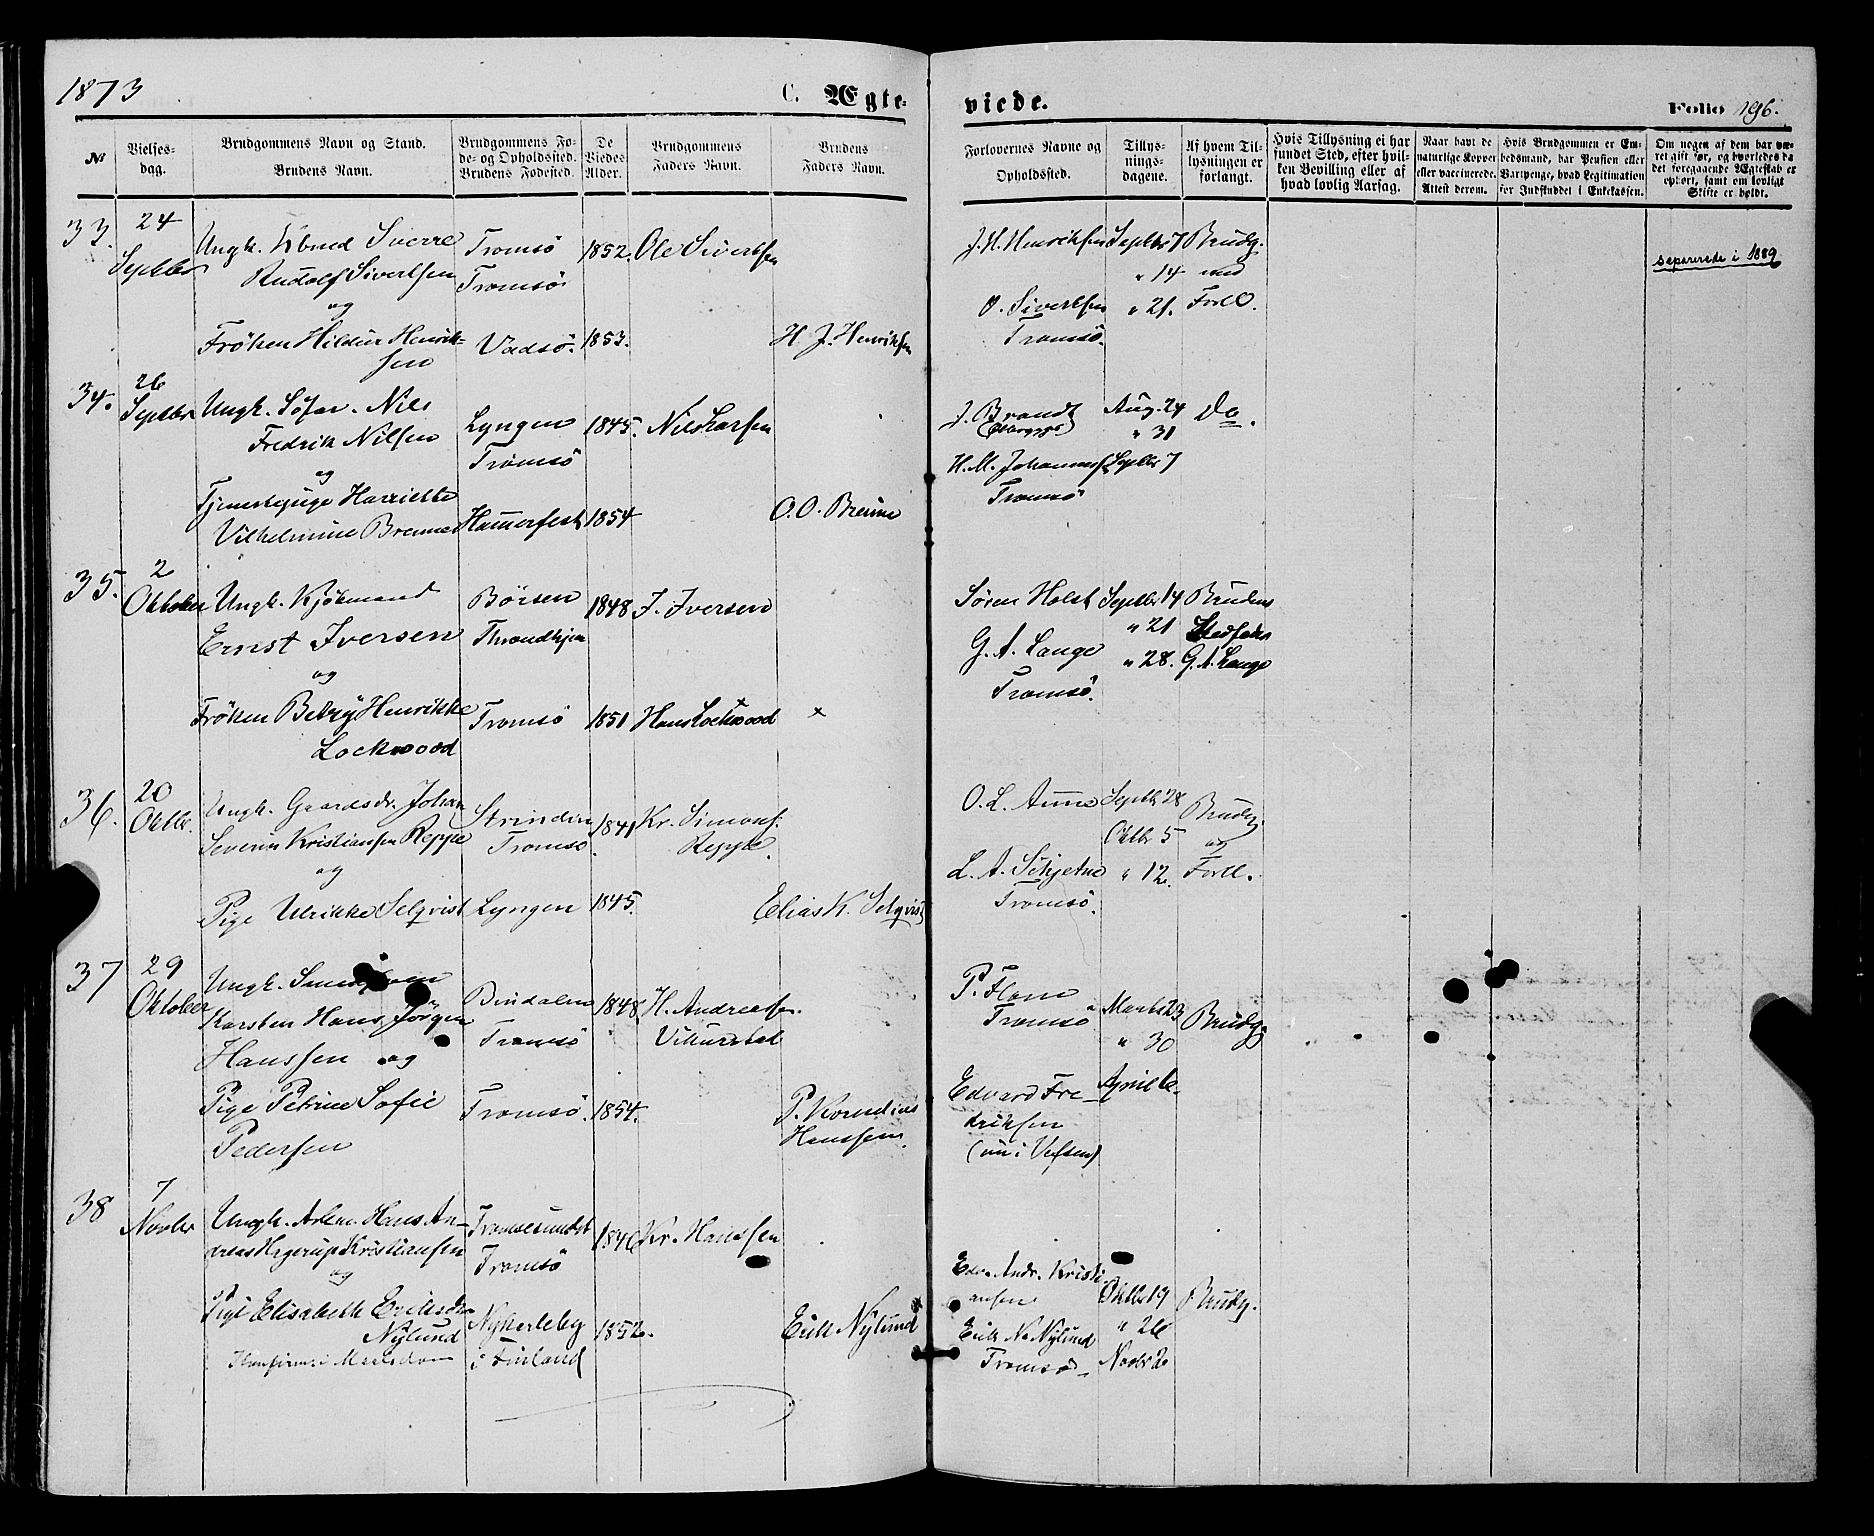 1873
C. Ægte-
viede.
Folio 196.
№
Vielses-
dag.
Brudgommens Navn og Stand.
Brudens Navn.
Brudgommens Fø-
de- og Opholdssted.
Brudens Fødested.
De
Viedes
Alder.
Brudgommens
Faders Navn.
Brudens
Faders Navn.
Forlovernes Navne og
Opholdssted.
Tillys-
nings-
dagene.
Af hvem Til-
lysningen er
forlangt.
Hvis Tillysning ei har
fundet Sted, efter hvil-
ken Bevilling eller af
hvad lovlig Aarsag.
Naar havt de
naturlige Kopper
eller vaccinerede.
Attest derom.
Hvis Brudgommen er Em-
bedsmand, har Pension eller
Vartpenge, hvad Legitimation
for Indskuddet i Enkekassen.
Om nogen af dem har væ-
ret gift før, og hvorledes da
det foregaaende Ægteskab er
ophørt, samt om lovligt
Skifte er holdt.
33. 24 Septbr
Ungk. Sverre
Rudolf Sivertsen
og
Frøken Hildur Henrik-
sen
Tromsö
Tromsö
Vadsö.
1852.
1853.
Ole Sivertsen
H. J. Henriksen
J. H. Henriksen
O. Sivertsen
Tromsö.
Septbr 7
" 14
" 21.
Brudg.
med
Forl.
separerede i 1889
34. 26 Septbr
Ungk. Søfar. Nils
Fredrik Nilsen
og
Tjenestepige Harriette
Vilhelmine Breune
Lyngen
Tromsö
Hammerfest
1845.
1854
Nils Larsen
O. O. Breune
J. Brandt
H. M. Johannes
Tromsö
Aug. 24
" 31
Septbr 7
Do.
35. 2 Oktober
Ungk. Kjöbmand
Ernst Iversen
og
Frøken Betzy Henrikke
Lockwood
Börsen
Throndhjem
Tromsö
1848
1851
J. Iversen
Hans Lockwood
×
Søren Holst
G. A. Lange
Tromsö.
Septbr 14
" 21
" 28.
Brudens
Stedfader
G. A. Lange
36. 20 Oktbr.
Ungk. Gaardsdr. Johan
Severin Kristiansen Reppe
og
Pige Ulrikke Selqvist
Strinden
Tromsö.
Lyngen
1841
1845.
Kr. Simons.
Reppe.
Elias K. Selqvist
O. L. Aune
L. A. Schjetne
Tromsö.
Septbr 28
Oktbr 5
" 12.
Brudg.
og
Forl.
37 29 Oktober
Ungk.
Karsten Hans Jörgen
Hanssen og
Pige Petrine Sofie
Pedersen
Bindalen
Tromsö
Tromsö.
1848
1854.
H. Andreasen.
P. Kornelius
Hanssen.
P. Flom
Tromsö
Edvard Fre-
driksen
(nu i Vefsen)
Marts 23
" 30
April 6.
Brudg.
38 7 Novbr
Ungk. Arbm. Hans An-
dreas Hagerup Kristiansen
og
Pige Elisabeth Eriksdtr.
Nylund
Konfirm. i
Tromsesundet
Tromsö
Nykarleby
i Finland
1846
1852.
Kr. Hanssen
Erik Nylund
Edv. Andr. Kristi-
ansen
Erik N. Nylund
Tromsö
Oktbr 19
" 26
Novbr 2
Brudg.